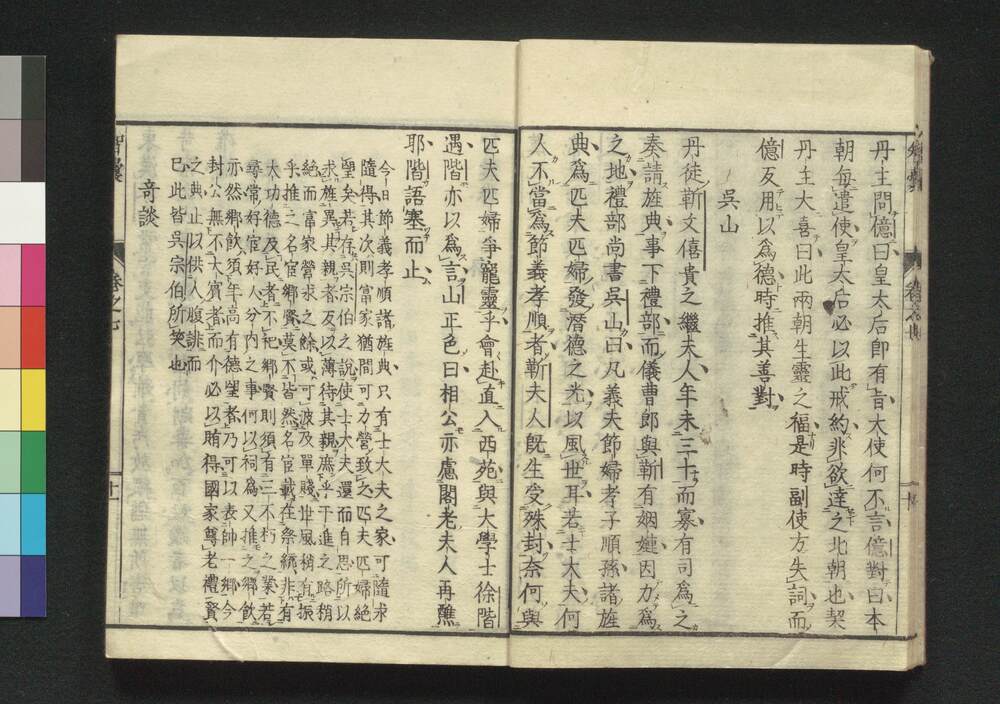 丹主問億曰皇太后即有旨大使何不言億對曰本
朝毎遣使皇太后必以此戒約非欲達之北朝也契
丹主大喜曰此兩朝生靈之福是時副使方失詞而
億反用以為德時推其善對
吳山
丹徒靳文僖貴之繼夫人年未三十而寡有司為之
奏請旌典事下禮部而儀曹郎與靳有姻娅因力為
之地禮部尚書吳山曰凡義夫節婦孝子順孫諸旌
典為匹夫匹婦發潛德之光以風世耳若士大夫何
人不當為節義孝順者靳夫人既生受殊封奈何與
匹夫匹婦爭寵靈乎會赴直入西苑與大學士徐階
遇階亦以為言山正色曰相公亦慮閣老夫人再醮
耶階語塞而止
今日節義孝順諸旌典只有士大夫之家可隨求
隨得其次則富家猶間可力營致之匹夫匹婦絕
望矣若存吳宗伯之說使士大夫還而自思所以
求旌異其親者反以薄待其親庶乎干進之路稍
絕而富家營求之餘或可波及單賤世風稍有振
乎推之名宦鄉賢莫不皆然名宦載在祭統非有
大功德及民者不祀鄉賢則須有三不朽之業若
尋常好官好人分內之事何以祠為又推之鄉飲
亦然鄉飲須年高有德望者乃可以表帥一鄉今
封公無不大賓者而介必以賄得國家尊老禮賢
之典止以供人腹誹而
已此皆吳宗伯所笑也
奇談
智囊
卷之七
十一